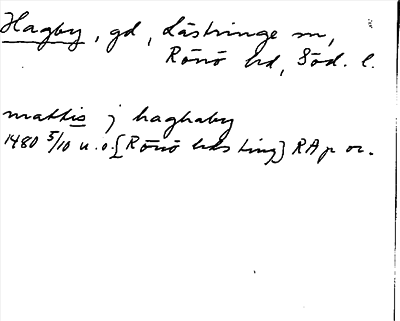 Hagby, gd, Lästringe sn,
Rönö hd, Söd. l.
mattis j haghaby
1480 5/10 u.o. [Rönö hds ting] RAp or.